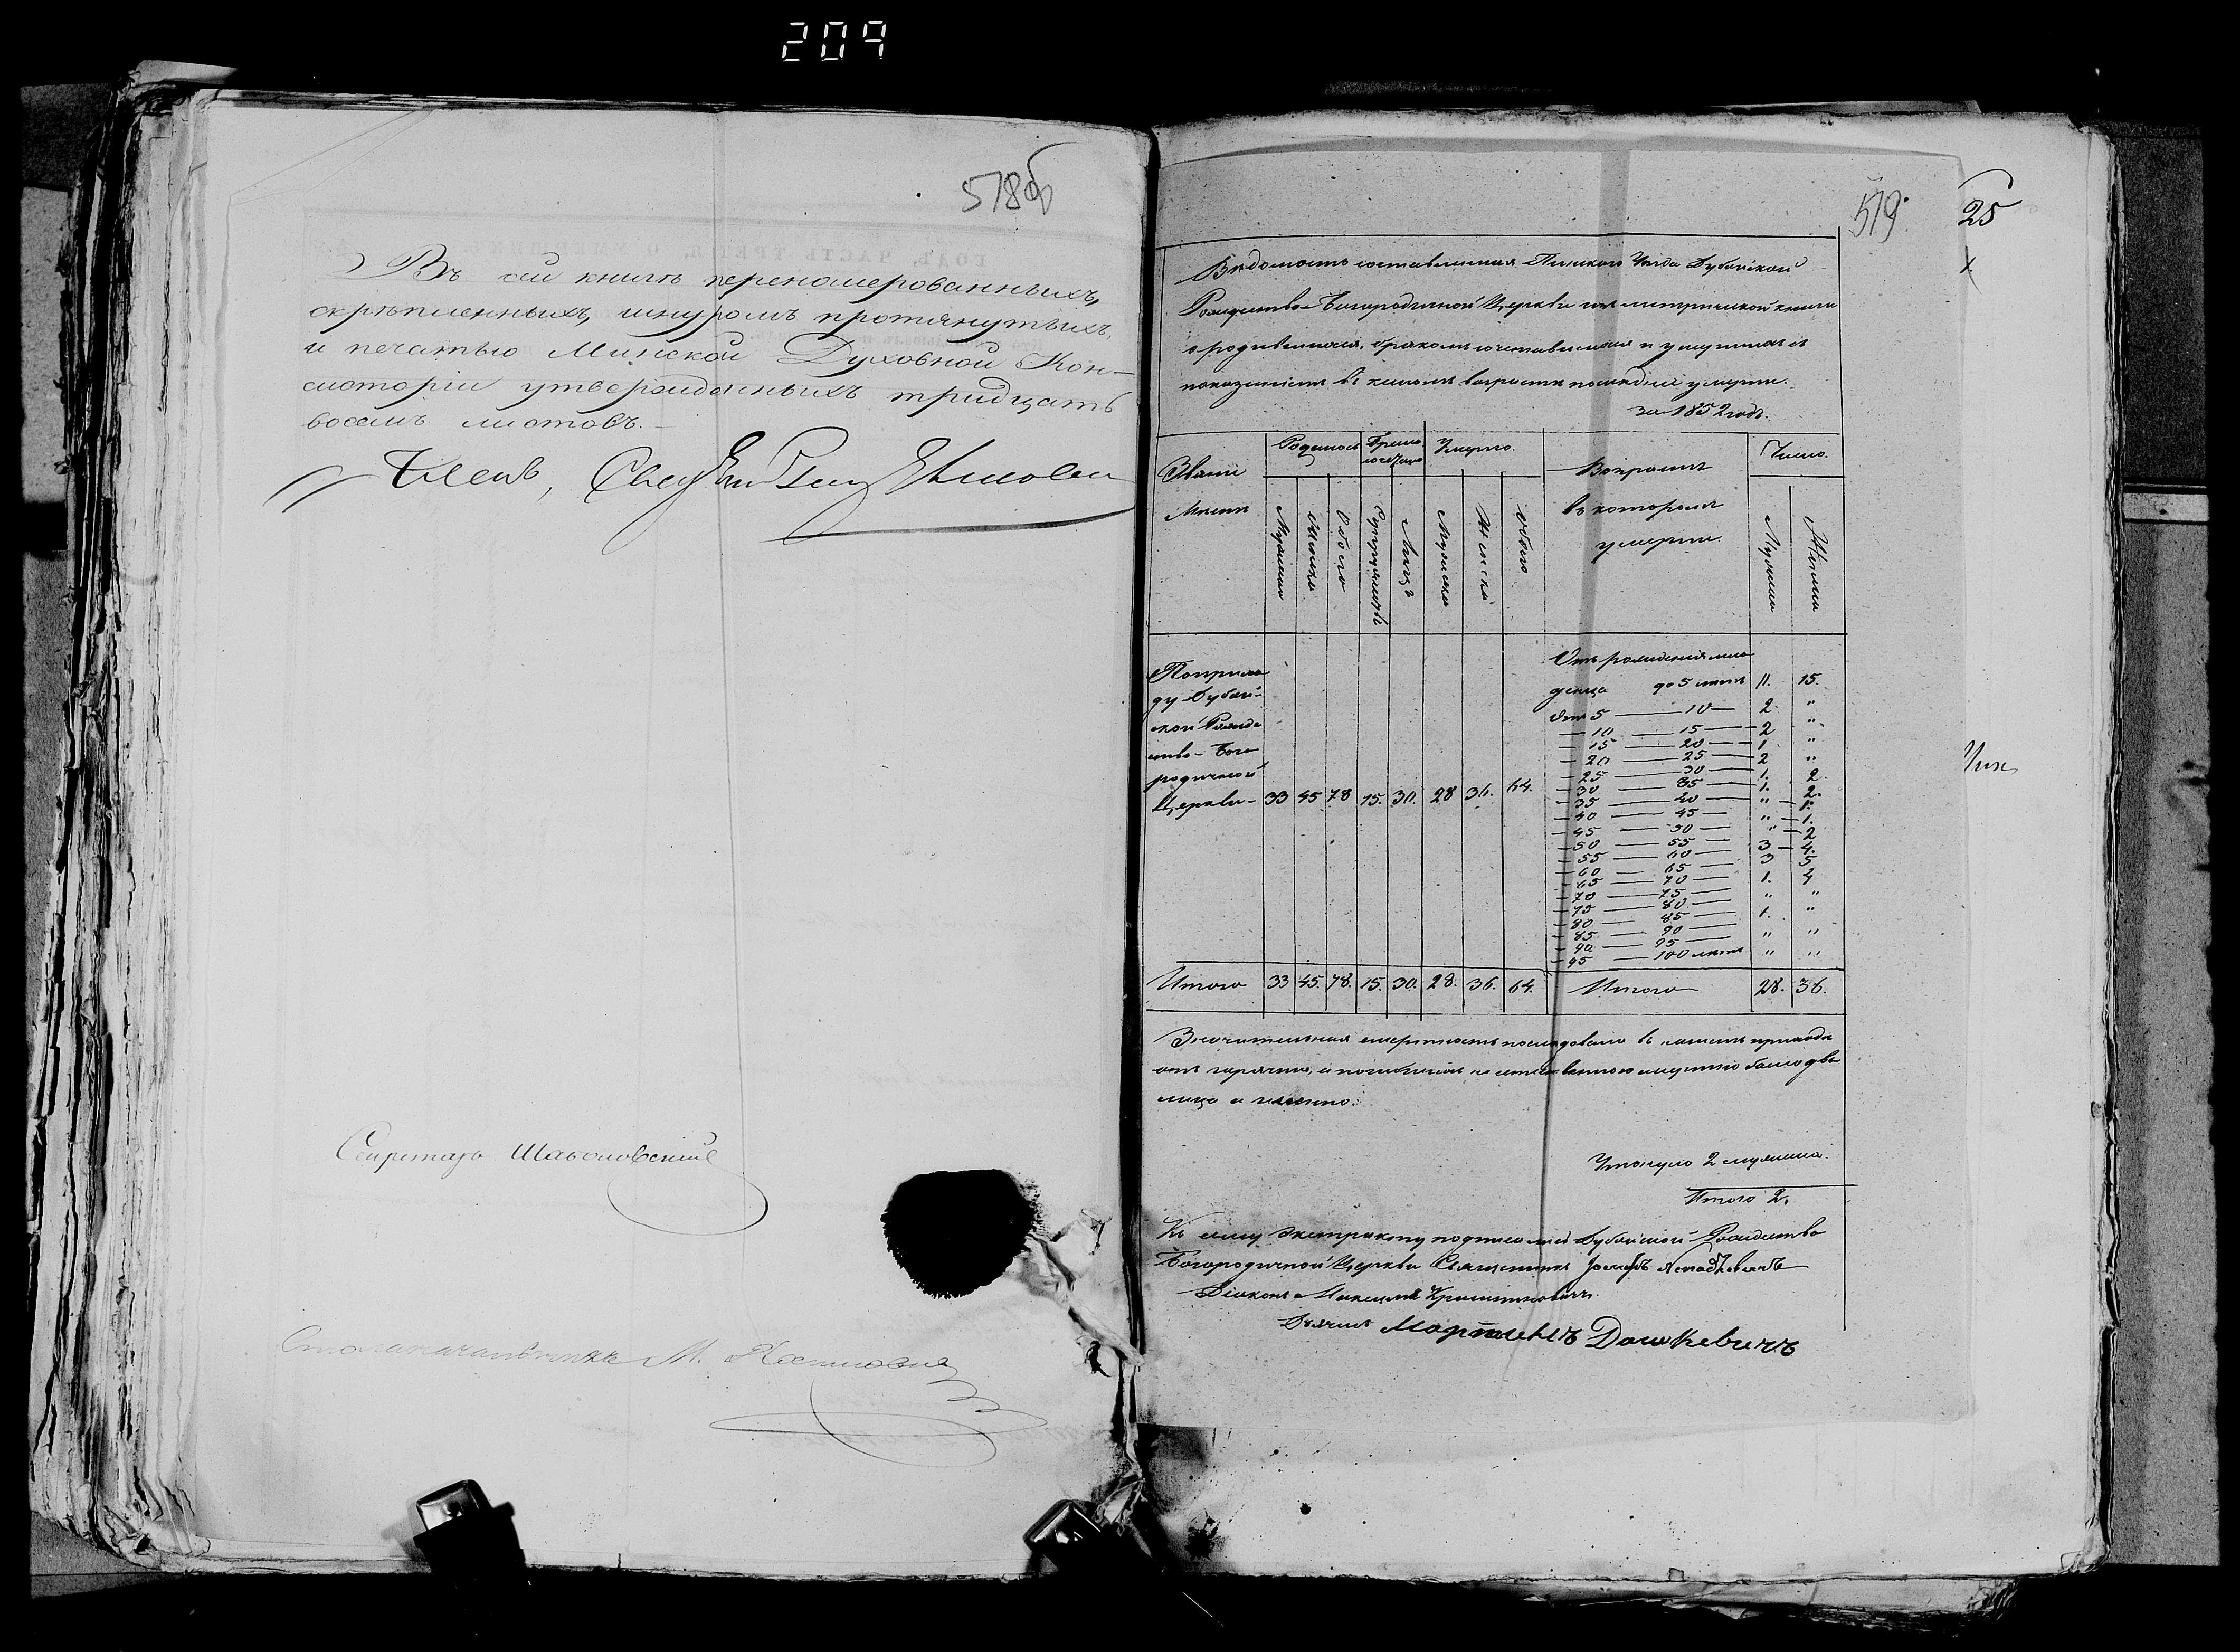 209
518об
Въ сей книгѣ переномерованныхъ,
скрѣпленныхъ, шнуромъ протянутыхъ,
и печатью Минской Духовной Кон-
систоріи утвержденныхъ тридцать
восемь листовъ.
Членъ,
Секретарь
Столоначальникъ М.
519.
25
Вѣдомость составленная Пинскаго Уѣзда Дубойской
Рождество-Богородичной Церкви изъ метрической книги
о родившихся, бракомъ сочетавшихся и умершихъ съ
показаніемъ въ какомъ возрастѣ послѣдніе умерли.
за 1852 годъ.
Званіе Мѣстъ
Родилось
Брако сочетано
Умерло.
Возрастъ въ которомъ умерли.
Число.
Мужеска Женска Обоего Супружествъ Лицъ Мужеска Женска Обоего Мужеска Женска
По прихо
ду Дубой-
ской Рожде
ство-Бого
родичной
Церкви- 33 45 78 15. 30. 28 36. 64.
Отъ рожденія мла
денца до 5 лѣтъ 11. 15.
Отъ 5 — 10 — 2 "
— 10 — 15 — 2 "
— 15 — 20 — 1 "
— 20 — 25 — 2 "
— 25 — 30 — 1. 2.
— 30 — 35 — 1. 2.
— 35 — 40 — " — 1.
— 40 — 45 — " — 1.
— 45 — 50 — " — 2
— 50 — 55 — 3 — 4.
— 55 — 60 — 3 5
— 60 — 65 —
— 65 — 70 — 1. 4
— 70 — 75 — " "
— 75 — 80 —
— 80 — 85 — 1. "
— 85 — 90 —
— 90 — 95 — " "
— 95 — 100 лѣтъ " "
Итого 33 45. 78. 15. 30. 28. 36. 64. Итого 28. 36.
Значительная смертность послѣдовала въ семъ приходѣ
отъ горячки, а погибшихъ неестественною смертію было два
лица а именно:
Утонуло 2 мужчина.
Итого 2.
Къ сему экстракту подписались Дубойской Рождество
Богородичной Церкви Священникъ Іосифъ
Діаконъ Максимъ
Дьячекъ Мартинъ Дашкевичъ